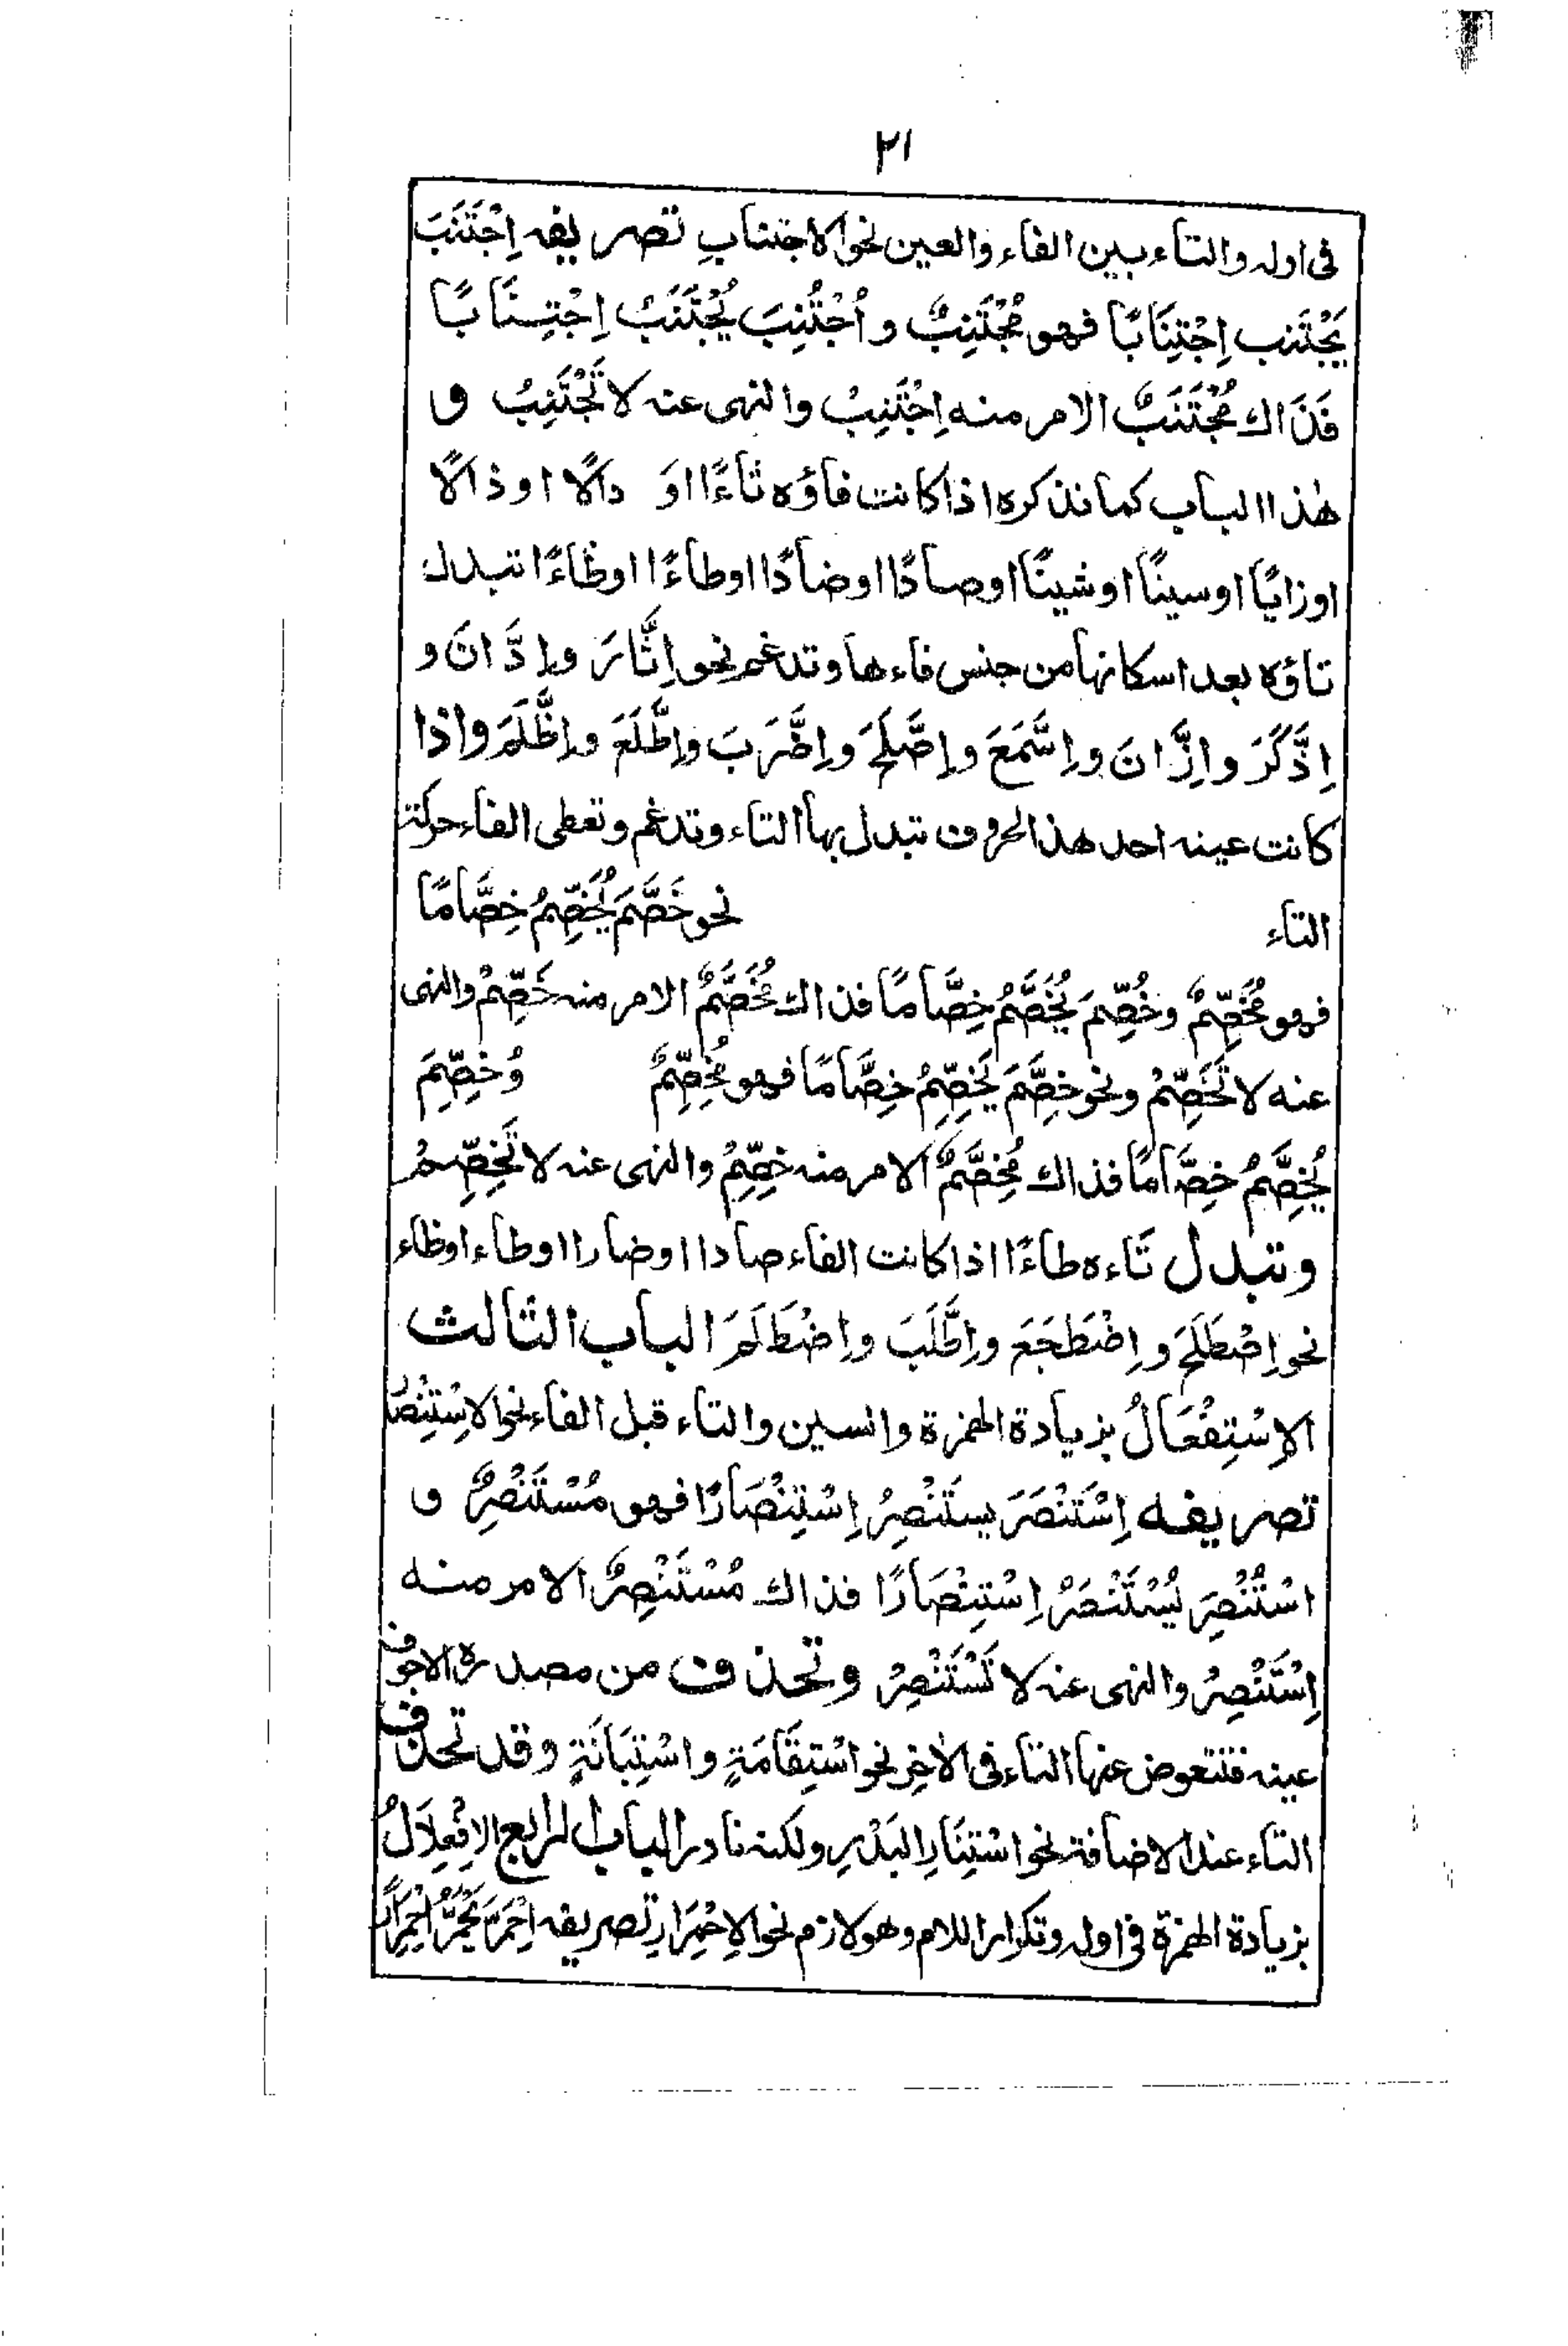 ٢١
فی اوله والتاء بین الفاء والعین نحو الاجتنابِ تصریفه اِجْتَنَبَ
یَجْتَنِب اِجْتِنَابًا فهو مُجْتَنِبٌ و اُجْتُنِبَ یُجْتَنَبُ اِجْتِنَابًا
فَذَاك مُجْتَنَبٌ الامر منه اِجْتَنِبْ والنهی عنه لا تَجْتَنِبْ و
هٰذا الباب كما نذكره اذا كانت فاؤه ثاءًا اوَ دالًا او ذالًا
اوزایًا اوسینًا اوشینًا اوصادًا اوضادًا اوطاءًا اوظاءًا تبدل
تاؤه بعد اسكانها من جنس فاءها وتدغم نحو اِثَّارَ وَاِدَّانَ و
اِذَّكَرَ واِزَّانَ واِسَّمَعَ واِصَّلَحَ واِضَّرَبَ واِطَّلَعَ واِظَّلَمَ واذا
كانت عینه احد هذ الحروف تبدل بها التاء وتدغم وتعطی الفاء حركة
التاء نحو خَصَّمَ یُخَصِّمُ خِصَّامًا
فهو مُخَصِّمٌ وَخُصِّمَ یُخَصَّمُ خِصَّامًا فذاك مُخَصَّمٌ الامر منه خَصِّمْ والنهی
عنه لا تَخَصِّمْ ونحو خِصَّمَ یَخِصِّمُ خِصَّامًا فهو مُخِصِّمٌ وَخِصِّمَ
یُخِصَّمُ خِصَّامًا فذاك مُخِصَّمٌ الامر منه خِصِّمْ والنهی عنه لا تَخِصِّمْ
وتبدل تَاءه طاءًا اذا كانت الفاء صادا اوضارا اوطاء اوظاء
نحو اِصْطَلَحَ و اِضْطَجَعَ واِطَّلَبَ واِضْطَلَمَ الباب الثالث
الاِسْتِفْعَالُ بزیادة الهمزة والسین والتاء قبل الفاء نحو الاِسْتِنْصَارُ
تصریفه اِسْتَنْصَرَ یستَنْصِرُ اِسْتِنْصَارًا فهو مُسْتَنْصِرٌ و
اسْتُنْصِرَ یُسْتَنْصَرُ اِسْتِنْصَارًا فذاك مُسْتَنْصِرٌ الامر منه
اِسْتَنْصِرْ والنهی عنه لا تَسْتَنْصِرْ وتحذف من مصدره الاجوف
عینه فتتعوض عنها التاء فی الاٰخِر نحو اسْتِقَامَةٍ واسْتِبَانَةٍ وقد تحذف
التاء عند الاضافة نحو اسْتِنَارِ البَدْرِ ولكنه نادر الباب الرابع الاِفْعِلَالُ
بزیادة الهمزة فی اوله وتكرار اللام وهو لازم نحو الاِحْمِرَارِ تصریفه اِحْمَرَّ یَحْمَرُّ اِحْمِرَارًا